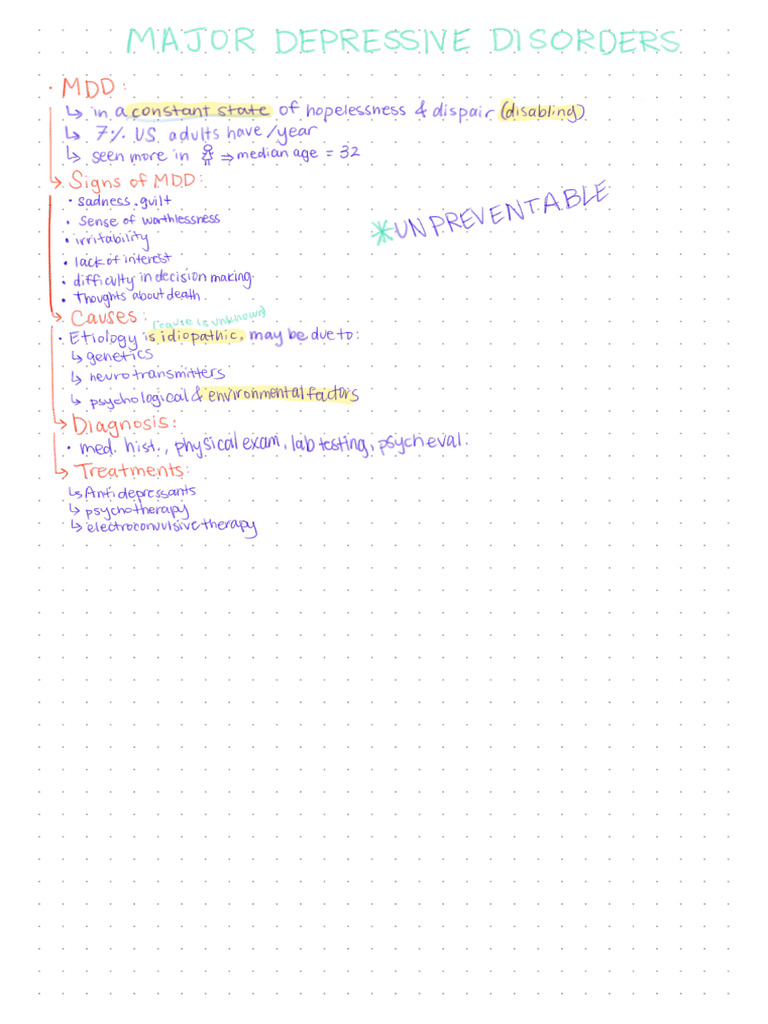 MAJOR DEPRESSIVE DISORDERS
· MDD:
↳ in a constant state of hopelessness & dispair (disabling)
↳ 7% US adults have /year
↳ seen more in ⇒ median age = 32
↳ Signs of MDD:
• sadness, guilt
• Sense of worthlessness
• irritability
• lack of interest
• difficulty in decision making
• Thoughts about death.
*UNPREVENTABLE
↳ Causes:
(cause is unknown)
• Etiology is idiopathic, may be due to:
↳ genetics
↳ neurotransmitters
↳ psychological & environmental factors
↳ Diagnosis:
• med. hist., physical exam, lab testing, psych eval.
↳ Treatments:
↳ Antidepressants
↳ psychotherapy
↳ electroconvulsive therapy